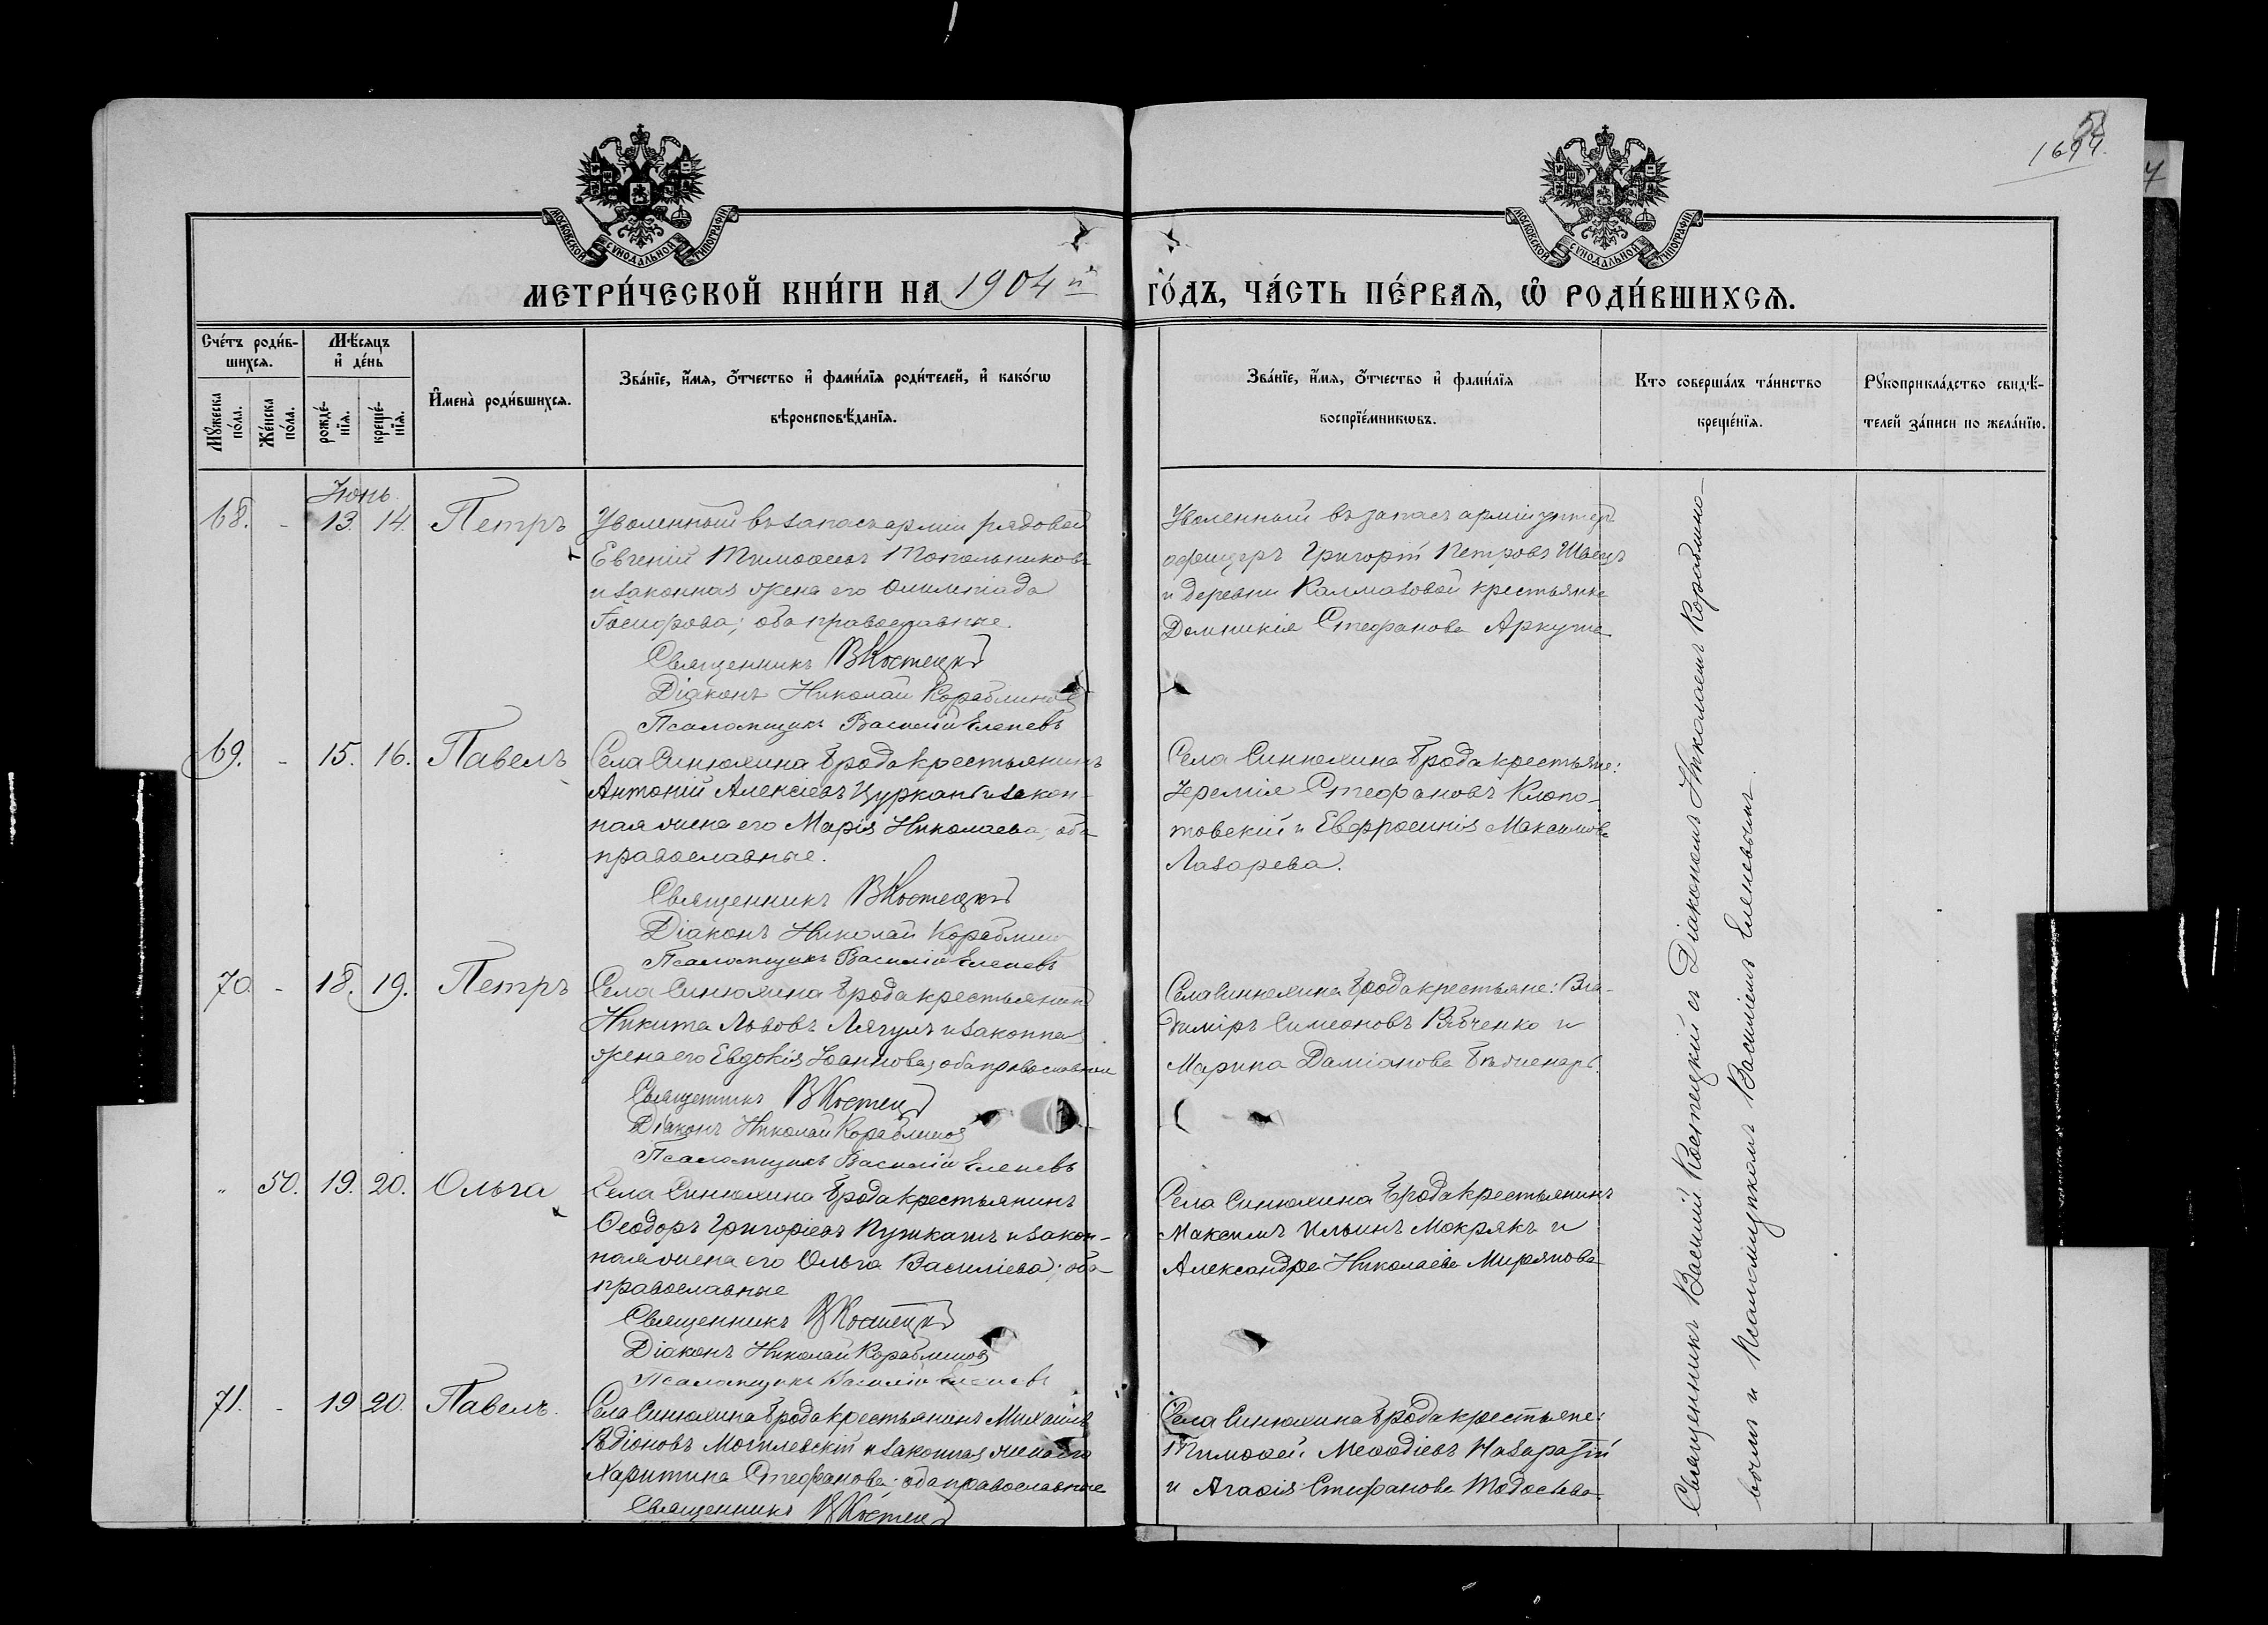 1694.
МОСКОВСКОЙ СѴНОДАЛЬНОЙ ТИПОГРАФІИ
МОСКОВСКОЙ СѴНОДАЛЬНОЙ ТИПОГРАФІИ
МЕТРИ́ЧЕСКОЙ КНИ́ГИ НА 1904й
ГО́ДЪ, ЧА́СТЬ ПЕ́РВАѦ, Ѽ РОДИ́ВШИХСѦ.
Сче́тъ роди́в-
шихсѧ.
Мꙋ́жеска по́ла.
Же́нска по́ла.
Мѣ́сѧцъ и҆ де́нь
рожде́-
нїѧ.
креще́-
нїѧ.
И҆мена̀ роди́вшихсѧ.
Зва́нїе, и҆́мѧ, ѻ҆́тчество и҆ фами́лїѧ роди́телей, и҆ како́гѡ
вѣроисповѣ́данїѧ.
Зва́нїе, и҆́мѧ, ѻ҆́тчество и҆ фами́лїѧ
воспрїе́мникѡвъ.
Кто соверша́лъ та́инство
креще́нїѧ.
Рꙋкоприкла́дство свидѣ́-
телей за́писи по жела́нїю.
Іюнь
68. - 13. 14. Петръ
Уволенный въ запасъ арміи рядовой
Евгеній Тимоѳеевъ Топольниковъ
и законная жена его Олимпіада
оба православные.
Священникъ ВКостецкій
Діаконъ Николай Кораблиновъ
Псаломщикъ Василій Еленевъ
Уволенный въ запасъ арміи унтеръ
офицеръ Григорій Петровъ Швецъ
и деревни Калмазовой крестьянка
Домникія Стефанова Аркуша
69. - 15. 16. Павелъ
Села Синюхина Брода крестьянинъ
Антоній Алексіевъ Цурканъ и закон-
ная жена его Марія Николаева; оба
православные.
Священникъ ВКостецкій
Діаконъ Николай Кораблиновъ
Псаломщикъ Василій Еленевъ
Села Синюхина Брода крестьяне:
Іеремія Стефановъ Клопо-
товскій и Евфросинія Максимова
Лазарева.
70. - 18. 19. Петръ
Села Синюхина Брода крестьянинъ
Никита Львовъ Лягулъ и законная
жена его Евдокія Іоаннова; оба православные
Священникъ ВКостецкій
Діаконъ Николай Кораблиновъ
Псаломщикъ Василій Еленевъ
Села Синюхина Брода крестьяне: Вла-
диміръ Симеоновъ Рябченко и
Марина Даміанова
" 50. 19. 20. Ольга
Села Синюхина Брода крестьянинъ
Ѳеодоръ Григоріевъ Пушкашъ и закон-
ная жена его Ольга Василіева; оба
православные
Священникъ ВКостецкій
Діаконъ Николай Кораблиновъ
Псаломщикъ Василій Еленевъ
Села Синюхина Брода крестьянинъ
Максимъ Ильинъ Мокрякъ и
Александра Николаева Мирянова
71. - 19 20. Павелъ.
Села Синюхина Брода крестьянинъ Михаилъ
Родіоновъ Могилевскій и законная жена его
Харитина Стефанова; оба православные
Священникъ ВКостецкій
Села Синюхина Брода крестьяне:
Тимоѳей Меѳодіевъ Назаратій
и Агаѳія Стефанова Тодосьева.
Священникъ Василій Костецкій съ Діакономъ Николаемъ Кораблино-
вымъ и Псаломщикомъ Василіемъ Еленевымъ.